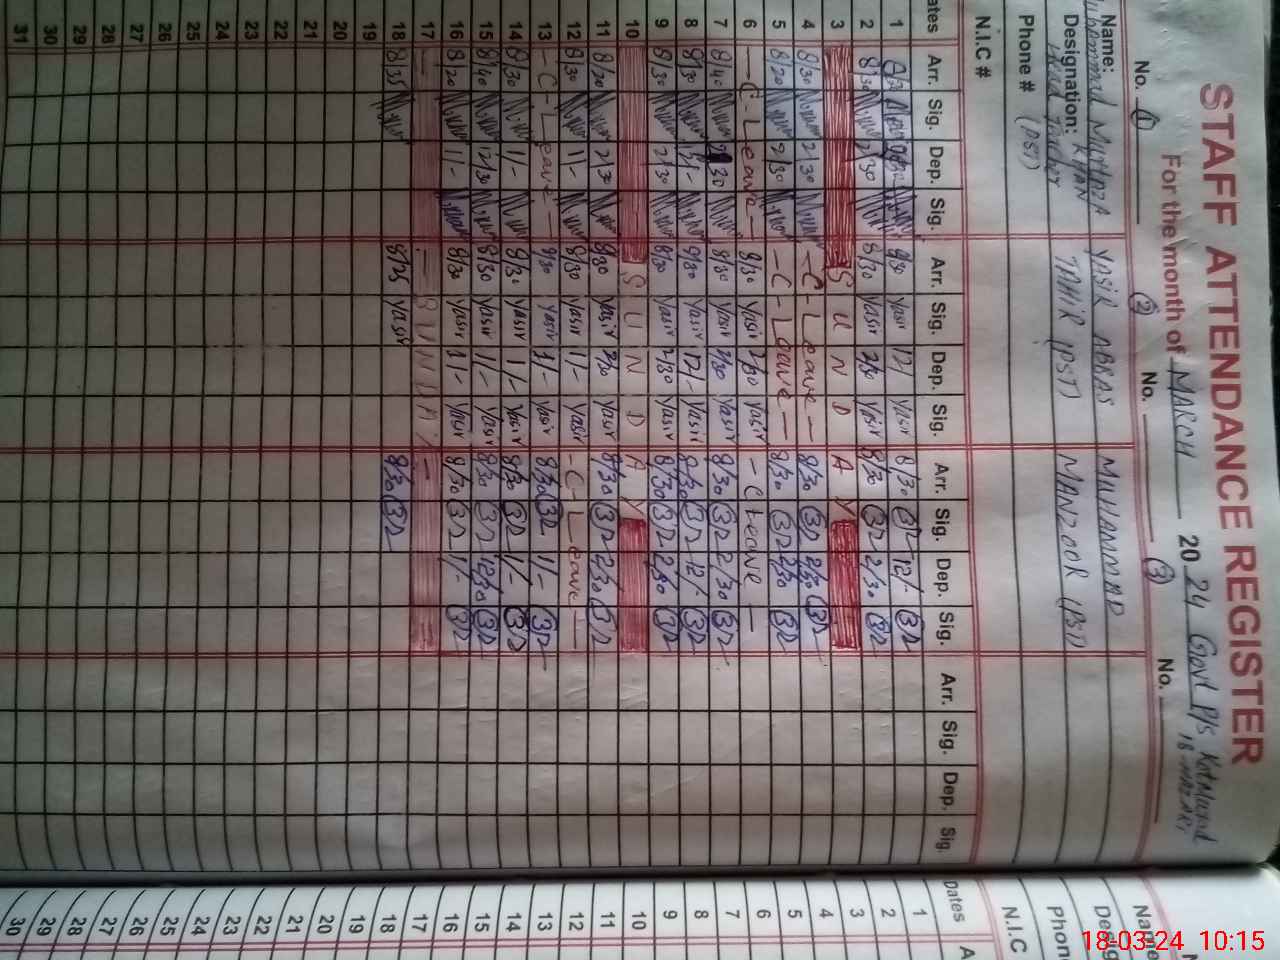 STAFF ATTENDANCE REGISTER
For the month of MARCH 2024 Govt P/S Kotmund
No. (1) (2) No. (3) No.
Name: Muhammad Murtaza KHAN YASIR ABBAS TAHIR (PST) MUHAMMAD MANZOOR (PST)
Designation: Head Teacher (PST)
Phone #
N.I.C #
Dates Arr. Sig. Dep. Sig. Arr. Sig. Dep. Sig. Arr. Sig. Dep. Sig. Arr. Sig. Dep. Sig.
1 8/30 Yasir 12/ Yasir 8/30 12/-
2 8/30 2/30 8/30 Yasir 2/30 Yasir 8/30 2/30
3 S U N D A Y
4 8/30 2/30 - C - Leave - 8/30 2/30
5 8/20 2/30 - C - Leave - 8/30 2/30
6 - C - Leave - 8/30 Yasir 2/30 Yasir - C Leave -
7 8/40 2/30 8/30 Yasir 2/30 Yasir 8/30 2/30
8 8/30 12/- 8/30 Yasir 12/- Yasir 8/30 12/-
9 8/30 2/30 8/30 Yasir 2/30 Yasir 8/30 2/30
10 S U N D A Y
11 8/20 2/30 8/30 Yasir 2/30 Yasir 8/30 2/30
12 8/30 1/- 8/30 Yasir 1/- Yasir - C - Leave -
13 - C - Leave - 8/30 Yasir 1/- Yasir 8/30 1/-
14 8/30 1/- 8/30 Yasir 1/- Yasir 8/30 1/-
15 8/40 12/30 8/30 Yasir 1/- Yasir 8/30 12/30
16 8/20 1/- 8/30 Yasir 1/- Yasir 8/30 1/-
17 S U N D A Y
18 8/35 8/25 Yasir 8/30
19
20
21
22
23
24
25
26
27
28
29
30
31
Name
Desig
Phon
N.I.C
Dates A
1
2
3
4
5
6
7
8
9
10
11
12
13
14
15
16
17
18
19
20
21
22
23
24
25
26
27
28
29
30
18-03-24 10:15